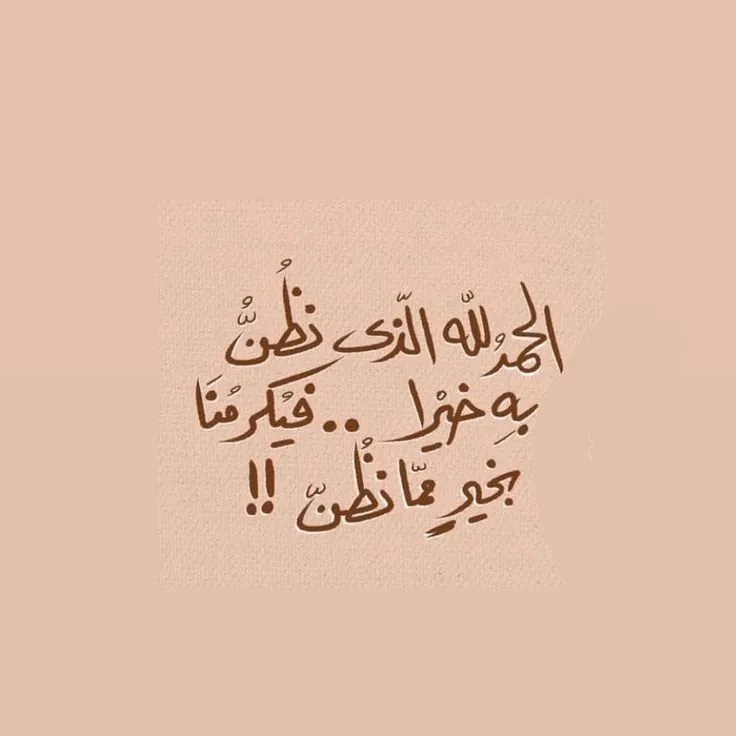 الحمدُ للّه الّذى نظُنُّ
بِه خيْرا .. فيُكرمُنَا
بخيرٍ ممّا نظُنّ !!